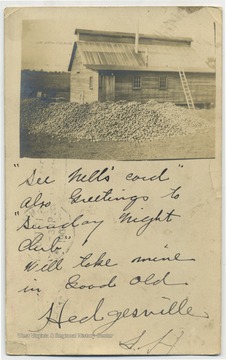 "See Nell's card"
Also Greetings to
"Sunday Night
Club"
Will take mine
in Good Old
Hedgesville
S. H
West Virginia & Regional History Center